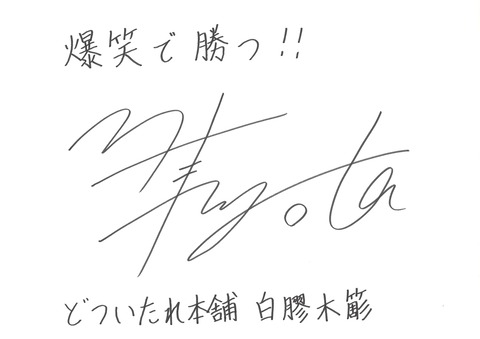 爆笑で勝つ!!
どついたれ本舗 白膠木簓